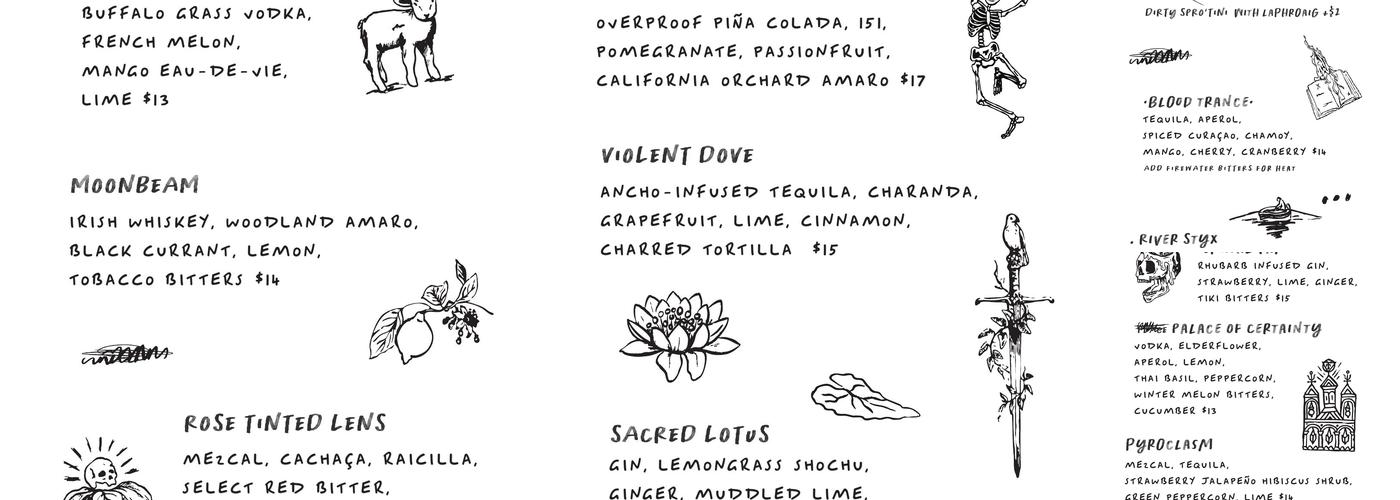 BUFFALO GRASS VODKA,
FRENCH MELON,
MANGO EAU-DE-VIE,
LIME $13
MOONBEAM
IRISH WHISKEY, WOODLAND AMARO,
BLACK CURRANT, LEMON,
TOBACCO BITTERS $14
ROSE TINTED LENS
MEZCAL, CACHAÇA, RAICILLA,
SELECT RED BITTER,
OVERPROOF PIÑA COLADA, 151,
POMEGRANATE, PASSIONFRUIT,
CALIFORNIA ORCHARD AMARO $17
VIOLENT DOVE
ANCHO-INFUSED TEQUILA, CHARANDA,
GRAPEFRUIT, LIME, CINNAMON,
CHARRED TORTILLA $15
SACRED LOTUS
GIN, LEMONGRASS SHOCHU,
GINGER, MUDDLED LIME,
DIRTY SPRO'TINI WITH LAPHROAIG +$2
·BLOOD TRANCE·
TEQUILA, APEROL,
SPICED CURAÇAO, CHAMOY,
MANGO, CHERRY, CRANBERRY $14
ADD FIREWATER BITTERS FOR HEAT
. RIVER STYX
RHUBARB INFUSED GIN,
STRAWBERRY, LIME, GINGER,
TIKI BITTERS $15
PALACE OF CERTAINTY
VODKA, ELDERFLOWER,
APEROL, LEMON,
THAI BASIL, PEPPERCORN,
WINTER MELON BITTERS,
CUCUMBER $13
PYROCLASM
MEZCAL, TEQUILA,
STRAWBERRY JALAPEÑO HIBISCUS SHRUB,
GREEN PEPPERCORN, LIME $14